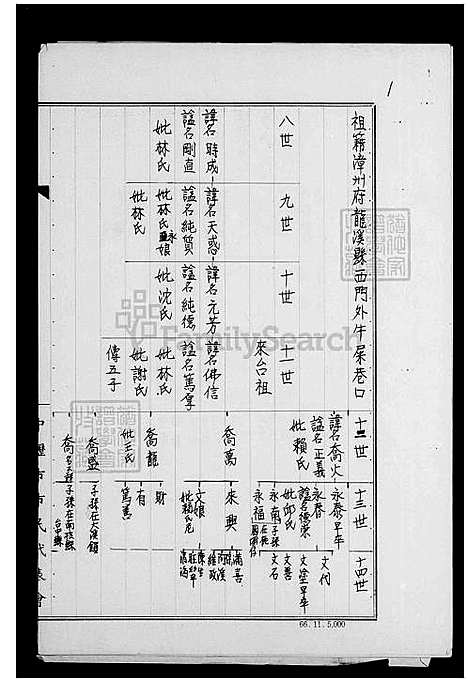 1
祖籍漳州府龍溪縣西門外牛屎巷口
八世
九世
十世
十一世
來台祖
十二世
十三世
十四世
諱名時成
諡名剛直
妣林氏
諱名天惑
諡名純質
妣林氏
永娘
妣林氏
諱名元芳
諡名純德
妣沈氏
諱名佛信
諡名篤享
妣林氏
妣謝氏
傳五子
諱名喬火
諡名正義
妣賴氏
喬萬
喬龍
妣王氏
喬盛
子孫在大溪鎮
永泰早卒
永春
諡名德榮
妣邱氏
永南
永福
來興
文娘
妣賴氏尾
財
有
篤善
文代
文塗早卒
文善
文石
滿喜
維政
中壢市市民代表會
66.11.5,000
FamilySearch